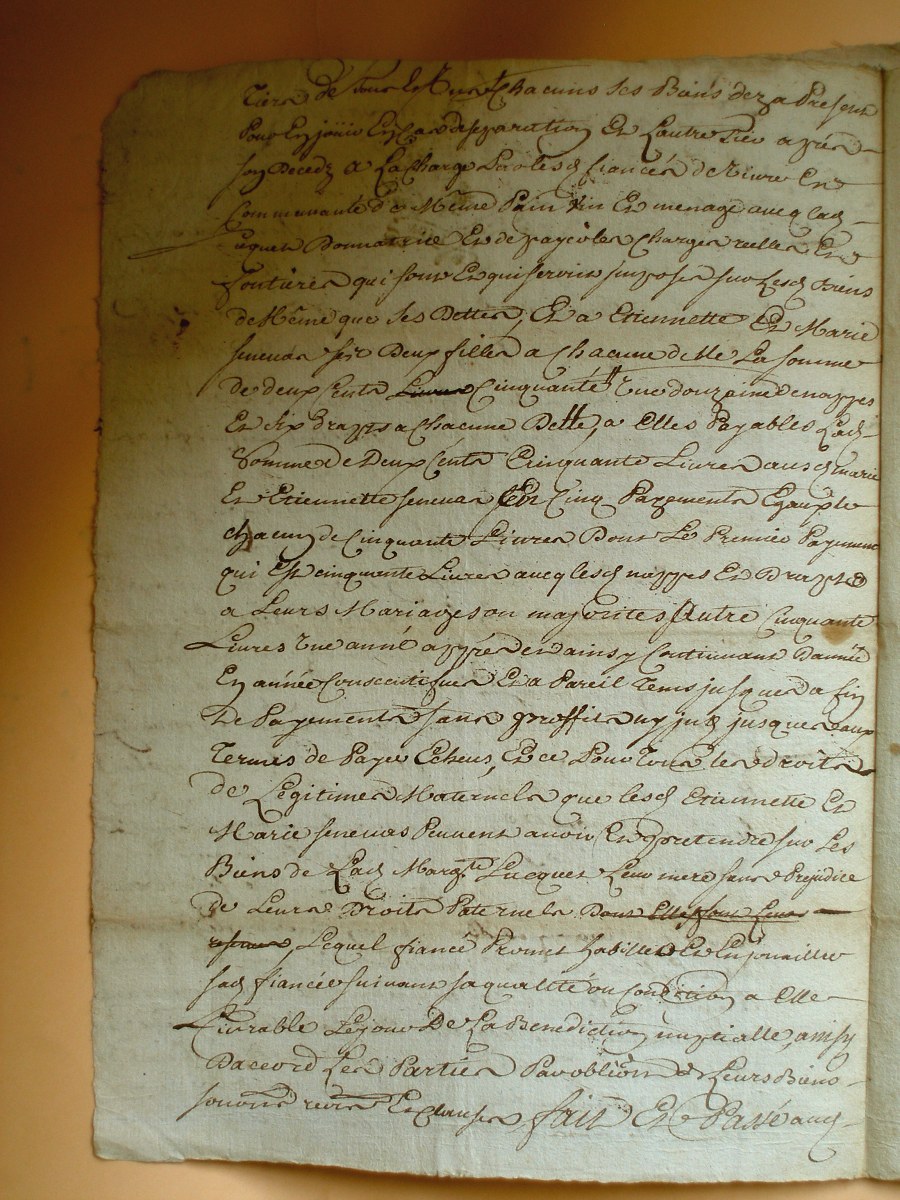 Tiers de tous le chacuns ses Biens dez a Present
Pour En jouir En Cas de separation Et Lautre Tier apres
son Decedz a La Charge Par lesd fiancés de Vivre En
Communauté de Même Pain Vin Et menage aueq lad
uques Donnatrice Et de payer les Charges reelles Et
fontieres qui sont Et qui seront imposes sur Lesd Biens
de Même que ses Dettes, Et a Etiennette Et Marie
seneuas ses Deux filles a chacune delle La somme
de deux Cents Livres Cinquante Une douzaine de nappes
Et six drapps a chacune Delle, a Elles Payables Lad
Somme de Deux Cents Cinquante Livres ausd marie
Et Etiennette seneuas En Cinq Payements Egaux le
chacun de Cinquante Livres Dont Le Premier Payement
qui Est cinquante Livres aueq lesd nappes Et Drapps
a Leurs Mariages ou majorites Autre Cinquante
Livres Une anné appres et ainsy Continuant Dannée
En année Consecutifues Et a Pareil Tems jusques a fin
De Payements sans proffits ny jusques aux
Termes de Paye Echeus, Et ce Pour Tous les droits
de Légitimes Maternels que lesd Etiennette Et
Marie seneuas Peuuent auoir Et pretendre sur Les
Biens de Lad Margte Lucques Leur mere sans Préjudice
de Leurs Droits Paternels Dont Elles font Leurs
Lequel fiancé Promet habiller Et Enjouailler
sad fiancée suiuant sa qualité ou Condition a Elle
Liurable Le jour De La Benediction nuptialle, ainsy
Daccord Les Parties Par obligon de Leurs Biens
Et clauses fait Et Passé aud